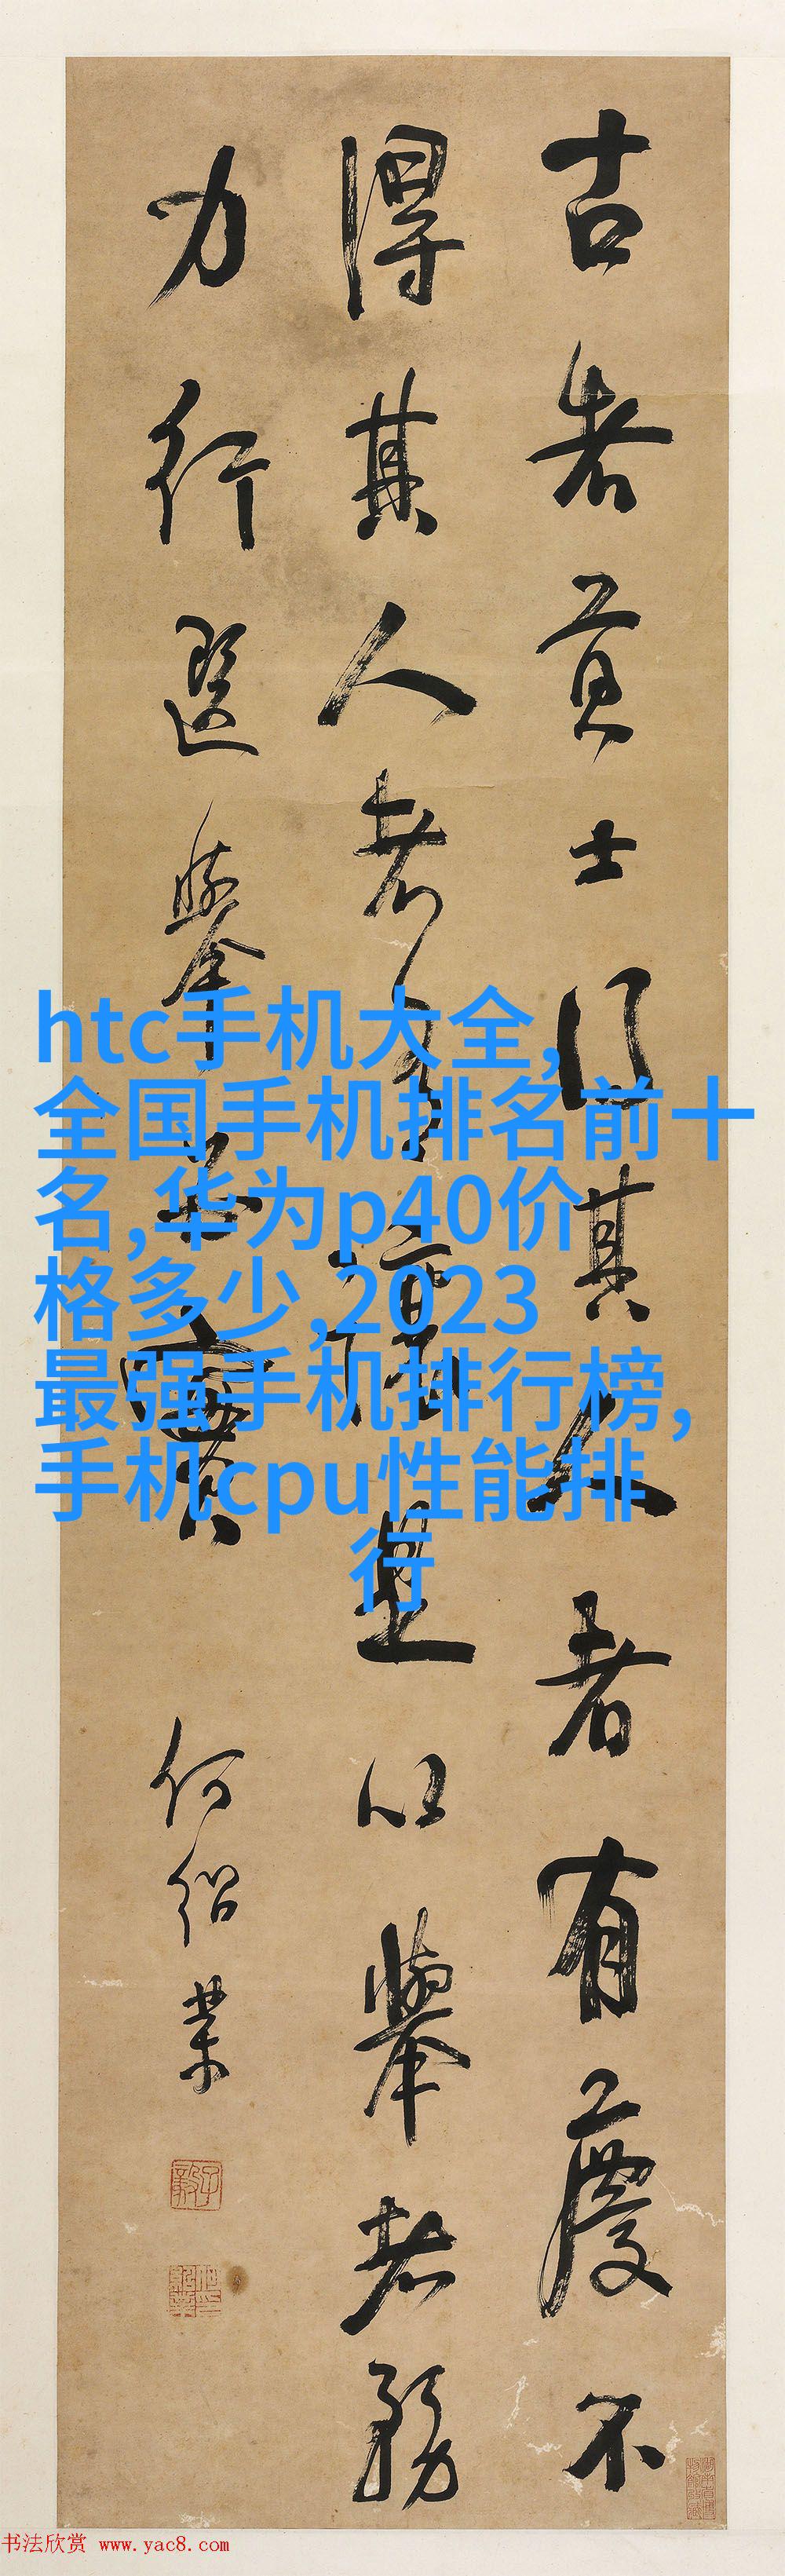 古者貢士得其人者有慶不
得其人者有讓是以舉者務
力行選舉實
何紹業
子毅
htc手机大全,
全国手机排名前十
名,华为p40价
格多少,2023
最强手机排行榜,
手机cpu性能排
行
书法欣赏 www.yac8.com